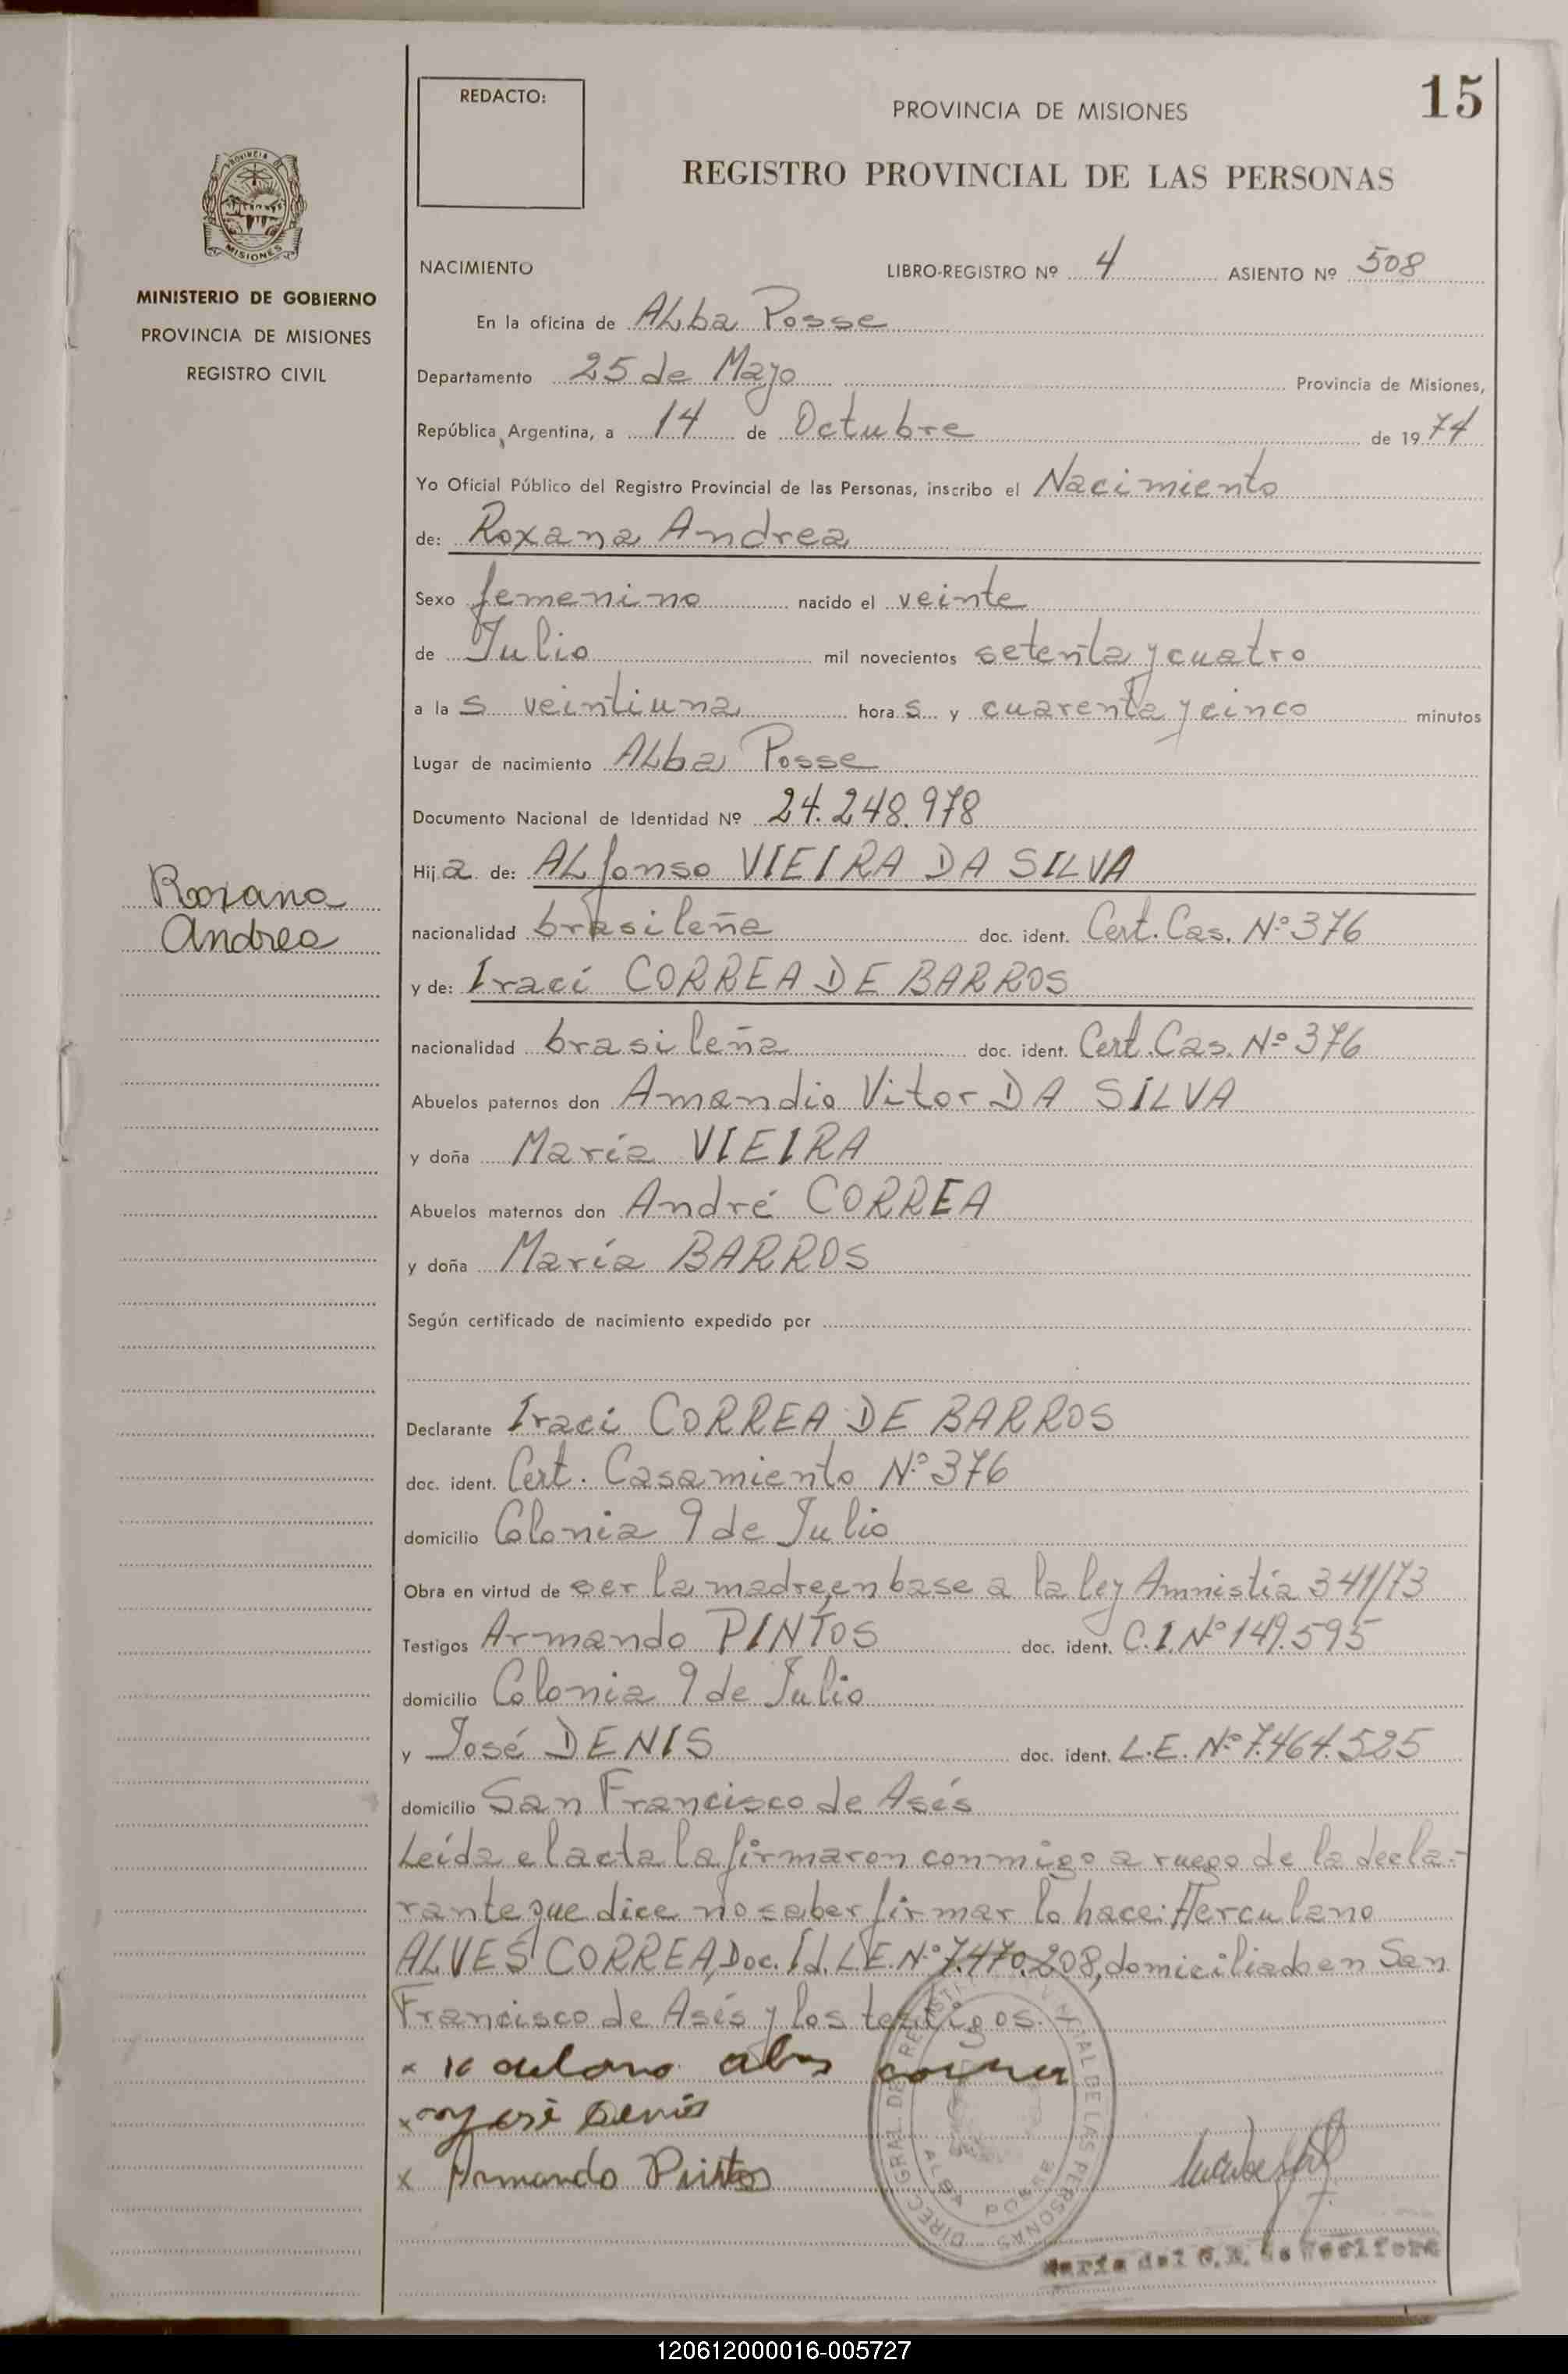 15
REDACTO:
PROVINCIA DE MISIONES
REGISTRO PROVINCIAL DE LAS PERSONAS
PROVINCIA DE
MISIONES
MINISTERIO DE GOBIERNO
PROVINCIA DE MISIONES
REGISTRO CIVIL
NACIMIENTO LIBRO-REGISTRO Nº 4 ASIENTO Nº 508
En la oficina de ALba Posse
Departamento 25 de Mayo Provincia de Misiones,
República Argentina, a 14 de Octubre de 1974
Yo Oficial Público del Registro Provincial de las Personas, inscribo el Nacimiento
de: Roxana Andrea
Sexo femenino nacido el veinte
de Julio mil novecientos setenta y cuatro
a la s veintiuna hora s y cuarenta y cinco minutos
Lugar de nacimiento ALba Posse
Documento Nacional de Identidad Nº 24.248.978
Hija de: ALfonso VIEIRA DA SILVA
Roxana
Andrea
nacionalidad brasileña doc. ident. Cert. Cas. Nº 376
y de: Iraci CORREA DE BARROS
nacionalidad brasileña doc. ident. Cert. Cas. Nº 376
Abuelos paternos don Amandio Vitor DA SILVA
y doña María VIEIRA
Abuelos maternos don André CORREA
y doña María BARROS
Según certificado de nacimiento expedido por
Declarante Iraci CORREA DE BARROS
doc. ident. Cert. Casamiento Nº 376
domicilio Colonia 9 de Julio
Obra en virtud de ser la madre, en base a la ley Amnistía 341/73
Testigos Armando PINTOS doc. ident. C.I. Nº 149.595
domicilio Colonia 9 de Julio
y José DENIS doc. ident. L.E. Nº 7.464.525
domicilio San Francisco de Asís
Leída el acta la firmaron conmigo a ruego de la decla-
rante que dice no saber firmar lo hace: Herculano
ALVES CORREA, Doc. Id. L.E. Nº 7.470.208, domiciliado en San
Francisco de Asís y los testigos.-
x alves correa
x José Denis
x Armando Pintos
DIREC. GRAL. DE REGISTRO PROVINCIAL DE LAS PERSONAS
ALBA POSSE
María del C. de
120612000016-005727